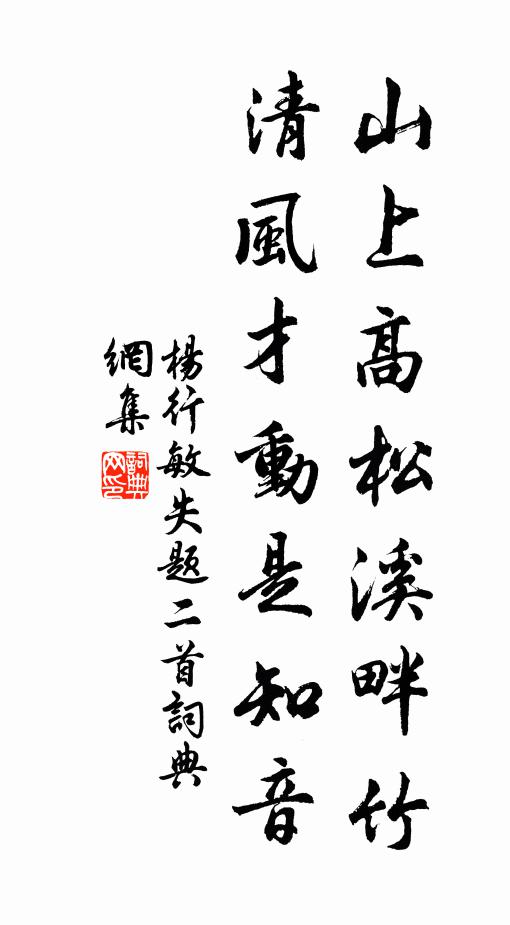 山上高松溪畔竹
清風才動是知音
楊行敏失题二首詞典
網集
詞典
网印